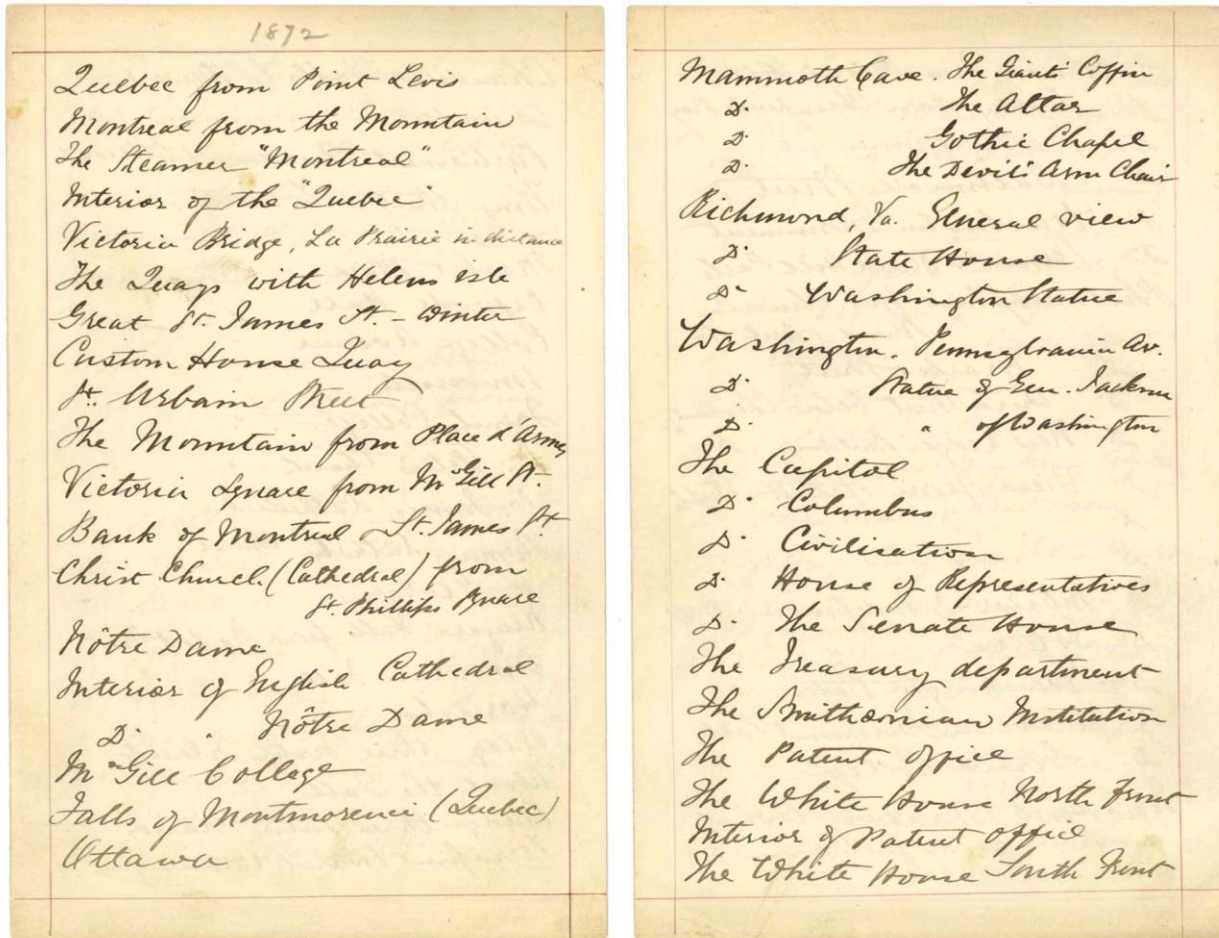 1872
Quebec from Point Levis
Montreal from the Mountain
The Steamer "Montreal"
Interior of the "Quebec"
Victoria Bridge, La Prairie in distance
The Quays with Helens isle
Great St. James St. - Winter
Custom House Quay
St. Urbain Street
The Mountain from Place d'Armes
Victoria Square from McGill St.
Bank of Montreal St. James St.
Christ Church (Cathedral) from
St. Phillips Square
Nôtre Dame
Interior of English Cathedral
Do. " Nôtre Dame
McGill College
Falls of Montmorenci (Quebec)
Ottawa
Mammoth Cave. The Giants Coffin
Do. The Altar
Do. Gothic Chapel
Do. The Devil's Arm Chair
Richmond, Va. General view
Do. State House
Do. Washington Statue
Washington. Pennsylvania Av.
Do. Statue of Gen. Jackson
Do. " of Washington
The Capitol
Do. Columbus
Do. Civilisation
Do. House of Representatives
Do. The Senate House
The Treasury department
The Smithsonian Institution
The Patent office
The White House North Front
Interior of Patent office
The White House South Front